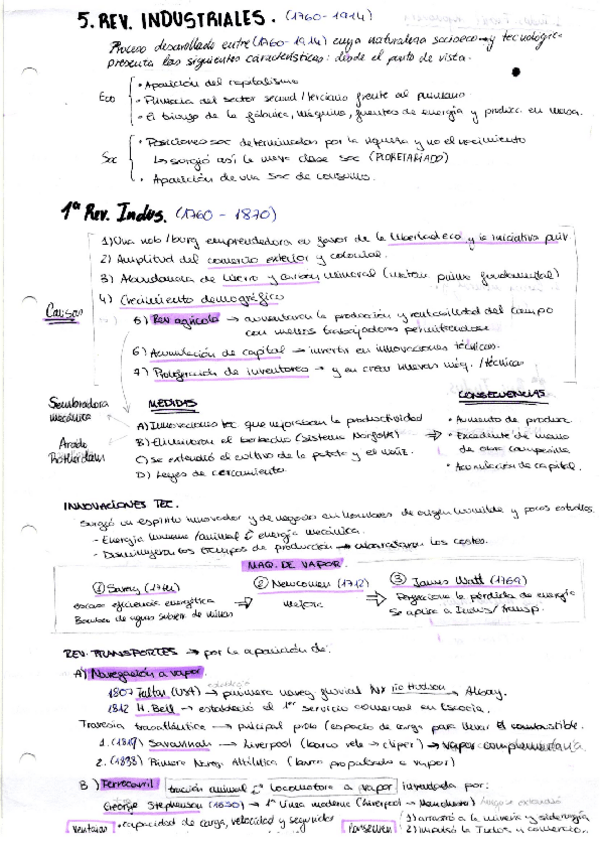 5. REV. INDUSTRIALES. (1760-1914)
Proceso desarrollado entre (1760-1914) cuya naturaleza socioeco y tecnológica
presenta las siguientes características: desde el punto de vista.
Eco
• Aparición del capitalismo
• Primacía del sector secund/terciario frente al primario
• El triunfo de la fábrica, máquina, fuentes de energía y producc. en masa.
Soc
• Posiciones soc determinadas por la riqueza y no el nacimiento
Lo surgió así la nueva clase soc (PLORETARIADO)
• Aparición de una soc de consumo.
1ª Rev. Indus. (1760 - 1870)
Causas
1) Una nob/burg emprendedora en favor de la libertad eco y la iniciativa priv.
2) Amplitud del comercio exterior y colonial.
3) Abundancia de hierro y carbón mineral (materia prima fundamental)
4) Crecimiento demográfico
5) Rev agrícola → aumentaron la producción y rentabilidad del campo
con menos trabajadores permitiendose
6) Acumulación de capital → invertir en innovaciones técnicas.
7) Proliferación de inventores → y en crear nuevas máq. / técnicas
Sembradora
mecánica
Arado
Rotterdam
MEDIDAS
A) Innovaciones tec que mejoraban la productividad
B) Eliminaron el barbecho (sistema Norfolk)
C) Se extendió el cultivo de la patata y el maíz.
D) Leyes de cercamiento.
CONSECUENCIAS
• Aumento de producc
• Excedente de mano
de obra campesina
• Acumulación de capital.
INNOVACIONES TEC.
Surgió un espíritu innovador y de negocio en hombres de origen humilde y pocos estudios.
- Energía humana/animal energía mecánica.
- Disminuyeron los tiempos de producción → abarataron los costes.
MAQ. DE VAPOR
① Savery
escasa eficiencia energética
Bombeo de agua subterr de minas
⇒
② Newcomen (1712)
mejora
⇒
③ James Watt (1769)
Perfecciona la pérdida de energía
Se aplica a Indus/transp.
REV. TRANSPORTES → por la aparición de:
A) Navegación a vapor
1807 Fulton (USA) → primera naveg fluvial NY río Hudson → Albany.
1812 H. Bell → estableció el 1er servicio comercial en Escocia.
Travesía trasatlántica → principal prblo (espacio de carga para llevar el combustible.
1. (1819) Savannah → Liverpool (barco vela → clíper) → vapor complementaria.
2. (1838) Primera Naveg. Atlántica (barco propulsado a vapor)
B) Ferrocarril tracción animal locomotora a vapor inventada por:
George Stephenson (1830) → 1ª línea moderna (Liverpool → Manchester) luego se extendió
Ventajas • capacidad de carga, velocidad y seguridad
Consecuen 1) arrastró a la minería y siderurgia
2) impulsó la Indus y comercio.